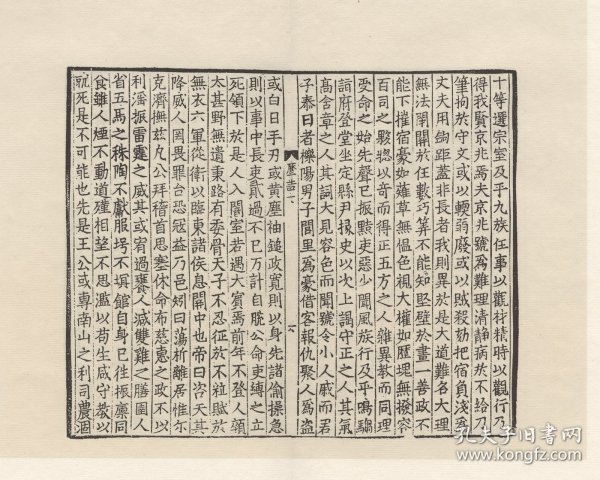 十等遷宗室及乎九族任事以觀材精時以觀行乃
得我賢京兆焉夫京兆號爲難理清静病於不給乃
筆拘於守文或以輭弱廢或以賊殺劾把宿負淺爲
丈夫用鉤距蓋非長者我則異於是大道難名大理
無法開闢於任數巧筭不能知堅壁於畫一善政不
能下摧宿豪如薙草無愠色視大權如歷塊無撥容
百司之夥揔以奇而得正五方之人雜異教而同理
受命之始先聲已振黠吏惡少聞風族行及乎鳴騶
詣府登堂坐定縣尹掾史以次上謁守正之人其氣
髙含章之人其詞大見容色而聞號令小人戚而君
子泰日者櫟陽男子閭里爲豪借客報仇聚人爲盜
或白日手刃或黄塵袖鎚政寛則以身先諸偷操急
則以事中長吏貳過不已万計自脱公命吏縳之立
死領下於是人入闇室若遇大賓焉前年不登人顛
太甚野無遺秉路有委骨天子不忍征於不粒賦於
無衣六軍從衛以臨東諸侯息關中也帝曰咨天其
降威人罔畏罪台恐寇益乃邑矧曰蕩析離居惟尓
克濟撫兹九公拜稽首思塞休命布慈惠之政不以
利滛振雷霆之威其或宥過襃人減雙雞之膳圉人
省五馬之秣陶不獻服圬不塓館自身已往振廪同
食雖人煙不動道殣相望不思濫以苟生咸守教以
就死是不可能也先是王公或專南山之利司農涸
孔夫子旧书网
www.kongfz.com